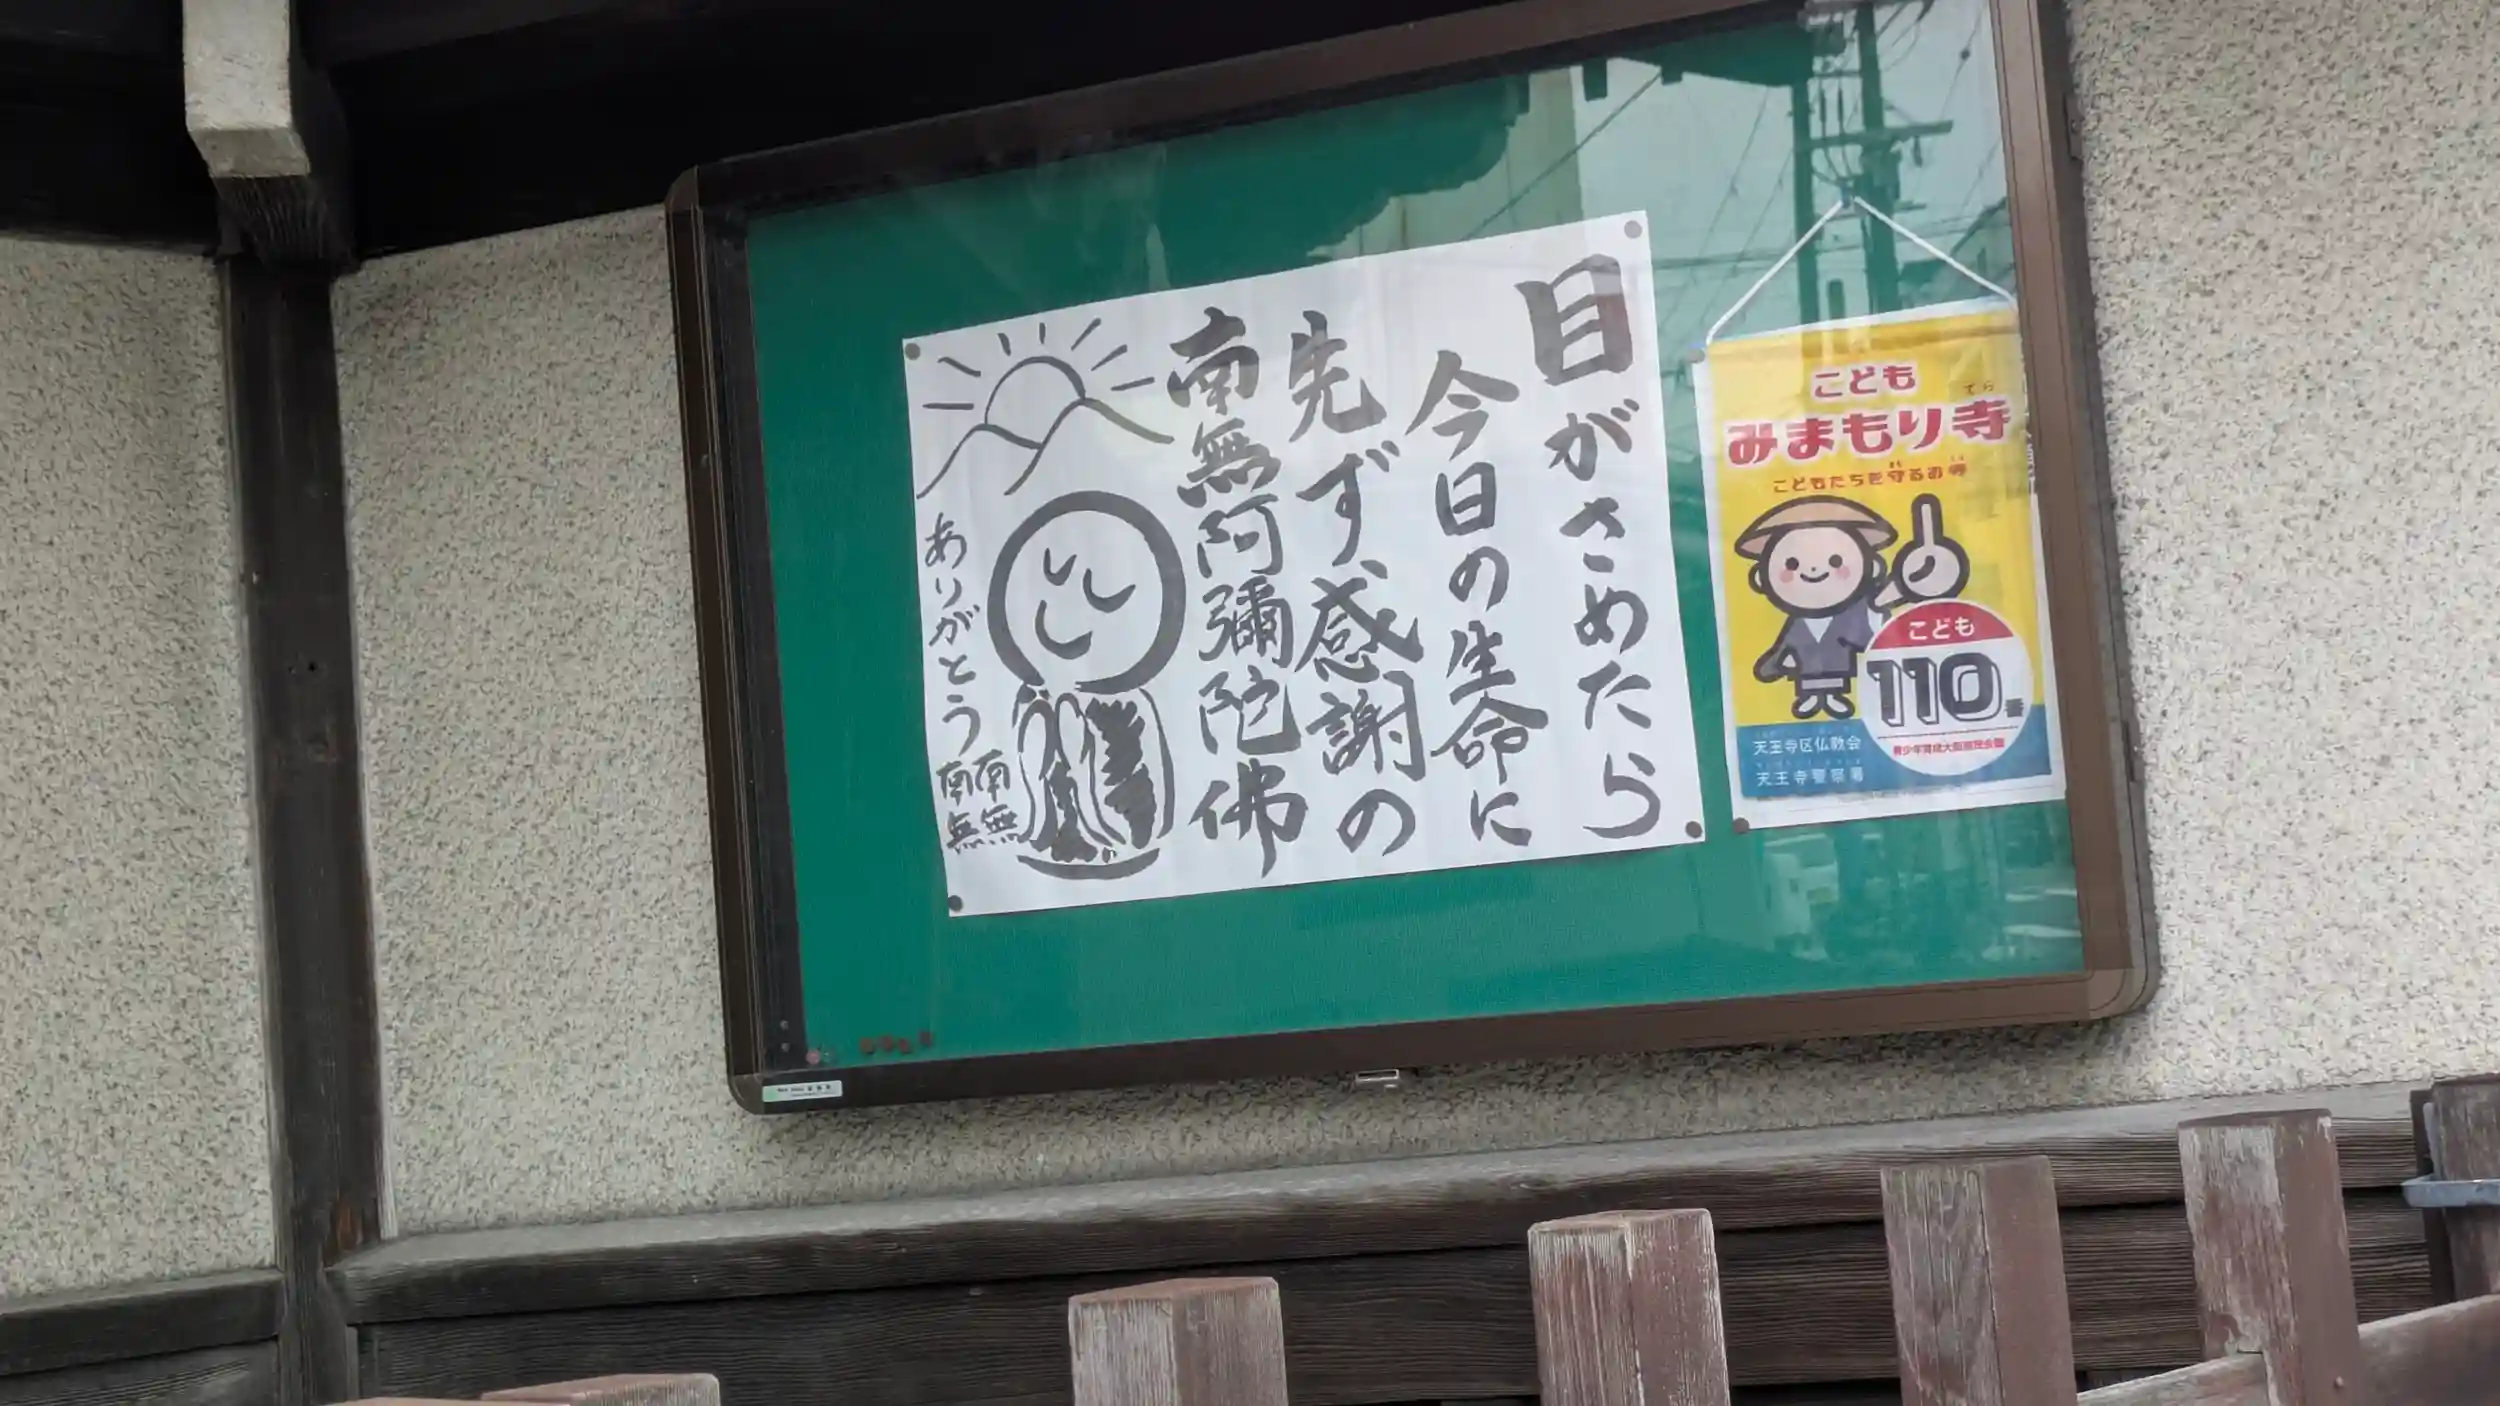 目がさめたら
今日の生命に
先ず、感謝の
南無阿彌陀佛
ありがとう
南無
南無
こども
みまもり寺
てら
こどもたちを守るお寺
こども
110番
天王寺区仏教会
天王寺警察署